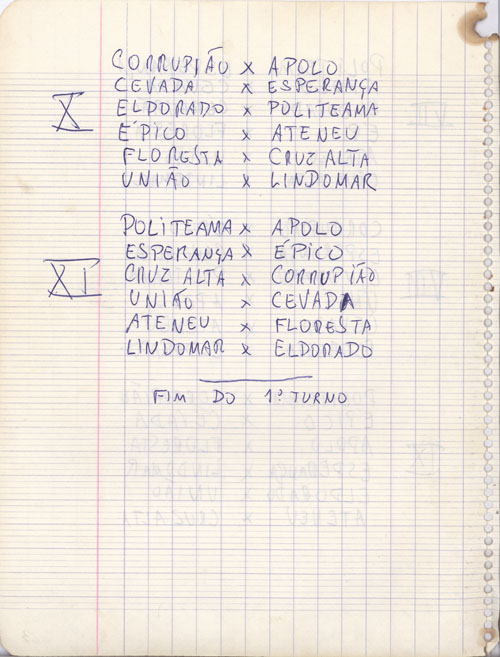 X
CORRUPIÃO X APOLO
CEVADA X ESPERANÇA
ELDORADO X POLITEAMA
ÉPICO X ATENEU
FLORESTA X CRUZ ALTA
UNIÃO X LINDOMAR
XI
POLITEAMA X APOLO
ESPERANÇA X ÉPICO
CRUZ ALTA X CORRUPIÃO
UNIÃO X CEVADA
ATENEU X FLORESTA
LINDOMAR X ELDORADO
FIM DO 1º TURNO